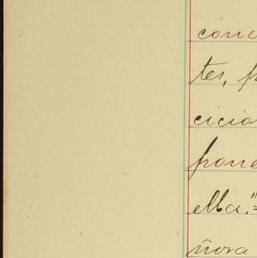 conc
tes, p
cicio
pone
ella."=
ñora